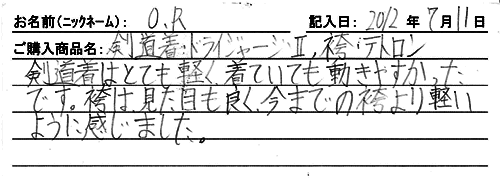 お名前(ニックネーム): O.R 記入日: 2012年7月11日
ご購入商品名: 剣道着・ドライジャージⅡ, 袴・テトロン
剣道着はとても軽く着ていても動きやすかった
です。袴は見た目も良く、今までの袴より軽い
ように感じました。